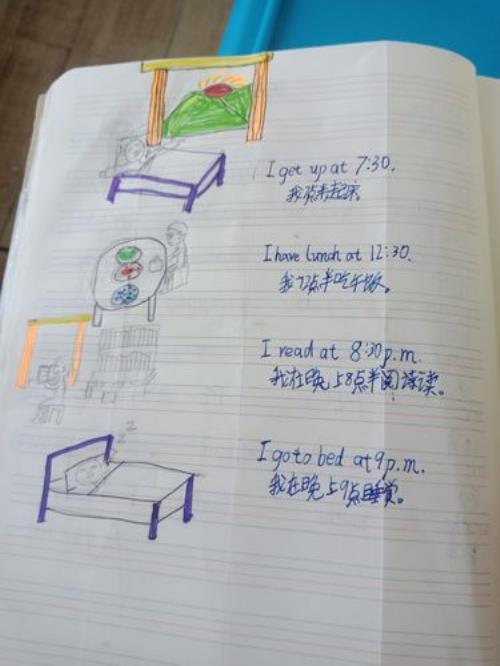 I get up at 7:30.
我7点半起床。
I have lunch at 12:30.
我12点半吃午饭。
I read at 8:30p.m.
我在晚上8点半阅读。
I go to bed at 9p.m.
我在晚上9点睡觉。
z z z